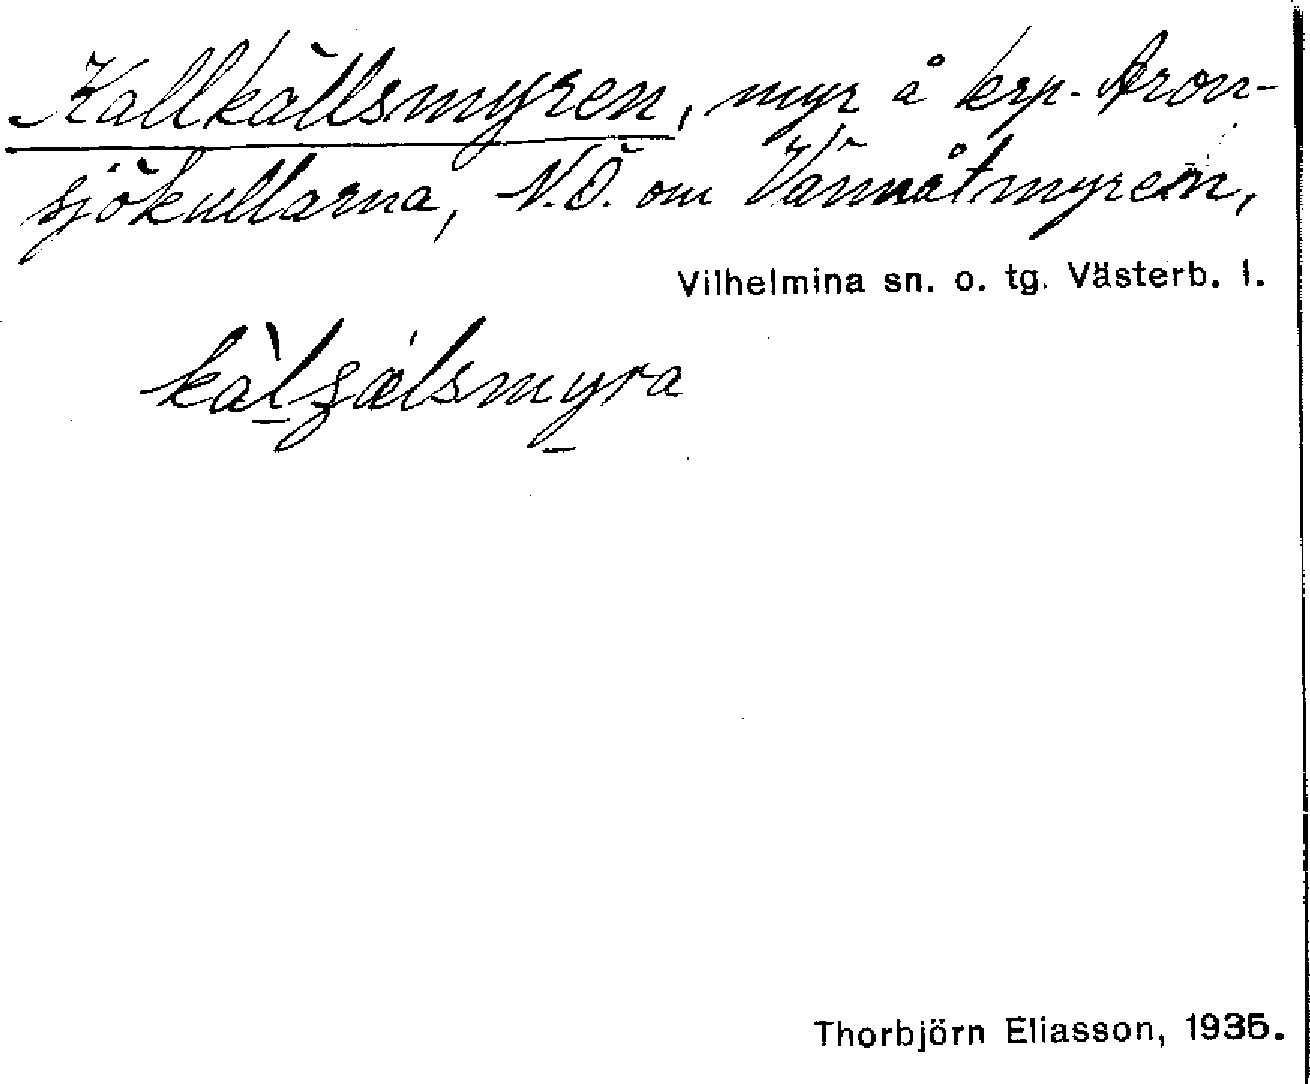 Kallkällsmyren, myr å krp. Aron-
sjökullarna, N.Ö. om Vännåtmyren,
Vilhelmina sn. o. tg. Västerb. l.
Thorbjörn Eliasson, 1935.